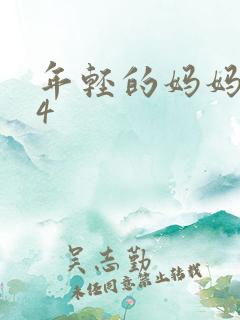 年轻的妈妈
4
吴志勤
未经同意禁止转载